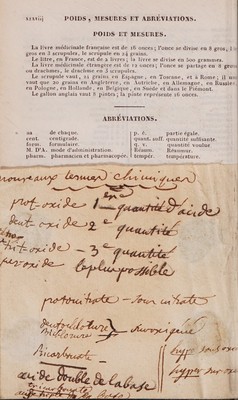 xxxviij POIDS, MESURES ET ABRÉVIATIONS.
POIDS ET MESURES.
La livre médicinale française est de 16 onces; l'once se divise en 8 gros, le
gros en 3 scrupules, le scrupule en 24 grains.
Le litre, en France, est de 2 livres; la livre se divise en 500 grammes.
La livre médicinale étrangère est de 12 onces; l'once se partage en 8 gros
ou drachmes, le drachme en 3 scrupules.
Le scrupule vaut, 24 grains en Espagne, en Toscane, et à Rome; il ne
vaut que 20 grains en Angleterre, en Autriche, en Allemagne, en Russie,
en Pologne, en Hollande, en Belgique, en Suède et dans le Piémont.
Le gallon anglais vaut 8 pintes; la pinte représente 16 onces.
ABRÉVIATIONS.
aa de chaque.
cent. centigrade.
form. formulaire.
M. D'A. mode d'administration.
pharm. pharmacien et pharmacopée.
p. é. partie égale.
quant. suff. quantité suffisante.
q. v. quantité voulue
Réaum. Réaumur.
tempér. température.
nouveaux termes chimiques
prot-oxide 1ère quantité d'acide
deut-oxide 2e quantité
trit-oxide 3e quantité
peroxide le plus possible
protonitrate - sous nitrate
suroxigené
Bicarbonate
acide double de la base
hypo sous
hyper